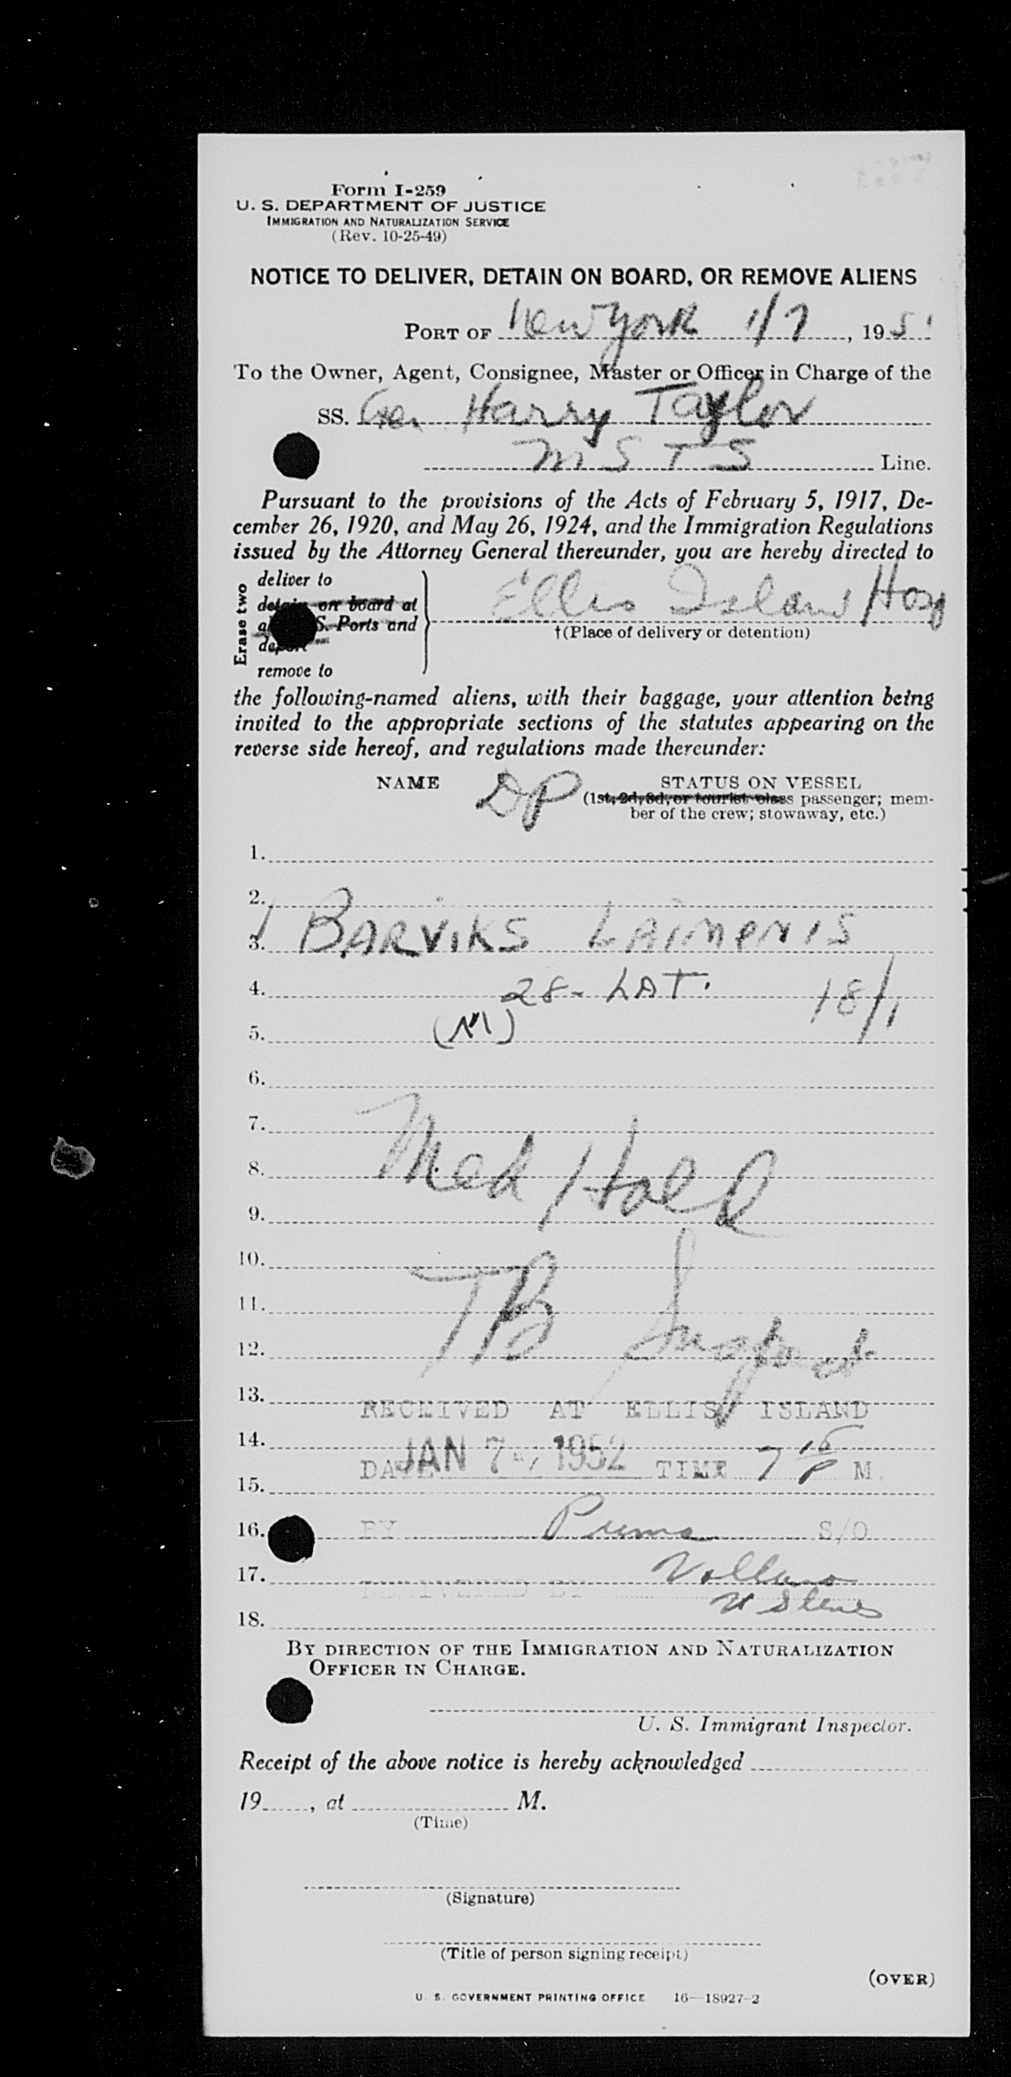 Form I-259
U. S. DEPARTMENT OF JUSTICE
IMMIGRATION AND NATURALIZATION SERVICE
(Rev. 10-25-49)
NOTICE TO DELIVER, DETAIN ON BOARD, OR REMOVE ALIENS
PORT OF New York 1/7, 195
To the Owner, Agent, Consignee, Master or Officer in Charge of the
SS. Gen Harry Taylor
MSTS Line.
Pursuant to the provisions of the Acts of February 5, 1917, De-
cember 26, 1920, and May 26, 1924, and the Immigration Regulations
issued by the Attorney General thereunder, you are hereby directed to
Erase two
deliver to
detain on board at
S. Ports and
deport
remove to
Ellis Island Hosp
†(Place of delivery or detention)
the following-named aliens, with their baggage, your attention being
invited to the appropriate sections of the statutes appearing on the
reverse side hereof, and regulations made thereunder:
NAME DP STATUS ON VESSEL
(1st, 2d, 3d, or tourist class passenger; mem-
ber of the crew; stowaway, etc.)
1.
2.
3. 1 BARVIKS LAIMONIS
4. 28 - LAT. 18/1
5. (M)
6.
7.
8. Med Hold
9.
10.
11. TB
12.
13. RECEIVED AT ELLIS ISLAND
14. DATE JAN 7 1952 TIME 7 15 P M.
15.
16. BY S/O
17. DELIVERED BY
18.
BY DIRECTION OF THE IMMIGRATION AND NATURALIZATION
OFFICER IN CHARGE.
U. S. Immigrant Inspector.
Receipt of the above notice is hereby acknowledged
19 , at M.
(Time)
(Signature)
(Title of person signing receipt)
(OVER)
U. S. GOVERNMENT PRINTING OFFICE 16—18927-2